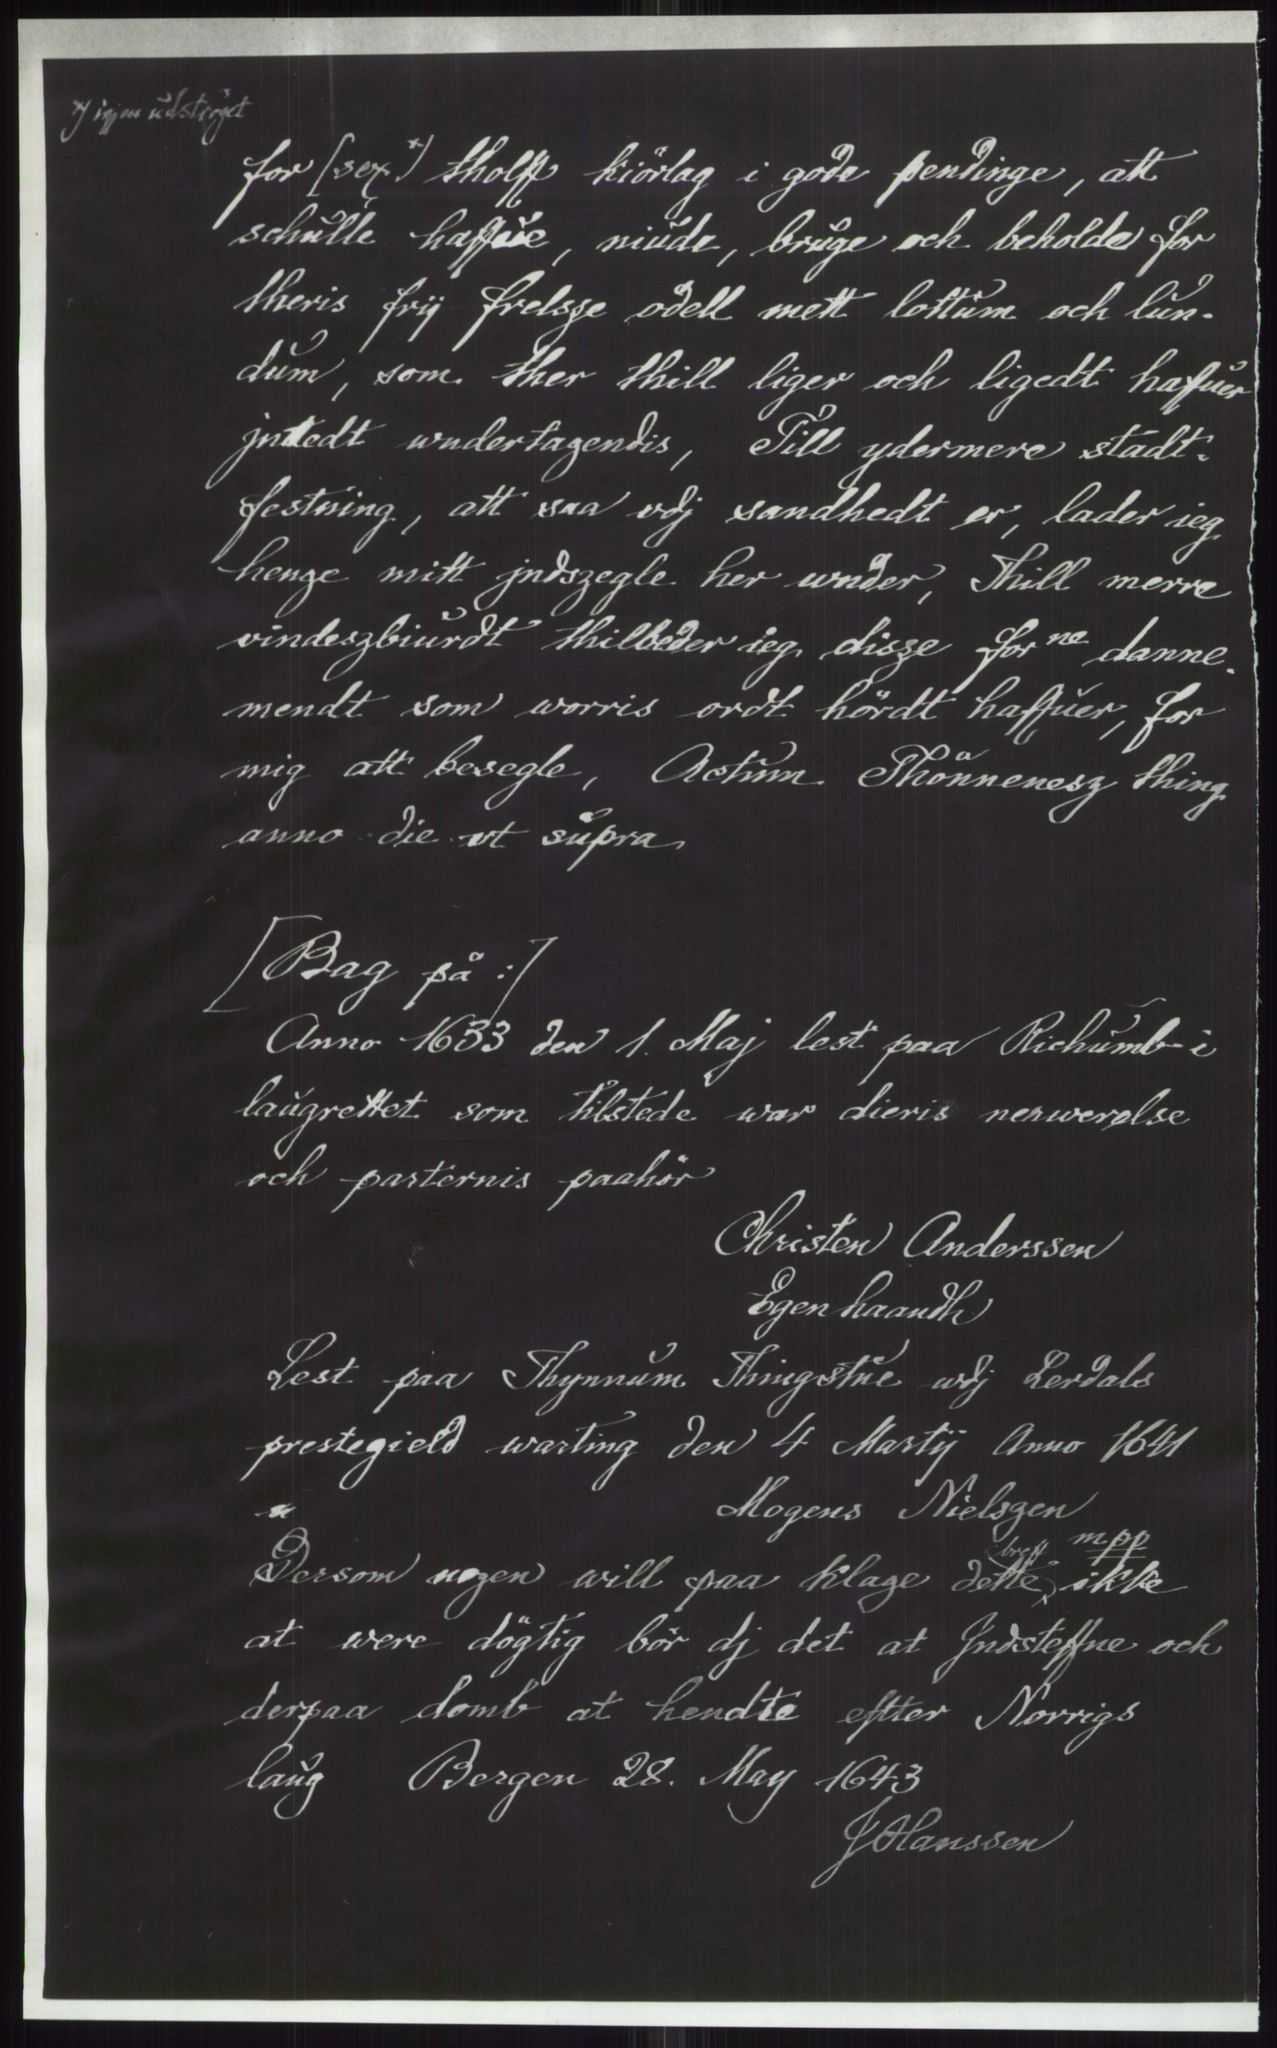 *) igjen udströget
for [sex*) tholff kiörlag i gode pendinge, att
schulle haffue, niude, bruge och beholde for
theris frij frelsze odell mett lottum och lun-
dum, som ther thill liger och ligedt haffuer
jntedt wndertagendis, Till ydermere stadt-
festning, att saa vdj sandhedt er, lader ieg
henge mitt jndszegle her wnder, Thill merre
vindeszbiurdt thilbeder ieg disze forne danne-
mendt som worris ordt hördt haffuer, for
mig att besegle, Actum Thönnenesz thing
anno die vt supra
[Bag på:]
Anno 1633 den 1. Maj lest paa Richumb i
laugrettet som tilstede war dieris nerwerelse
och parternis paahör
Christen Anderssen
Egen haandh
Lest paa Thynnum Thingstue wdj Lerdals
prestegield warting den 4 Martij Anno 1641
Mogens Nielszen
mpp
Dersom nogen will paa klage dette breff ikke
at were dögtig bör dj det at Jndsteffne och
derpaa domb at hendte efter Norrigs
laug Bergen 28. May 1643
J Hanssen